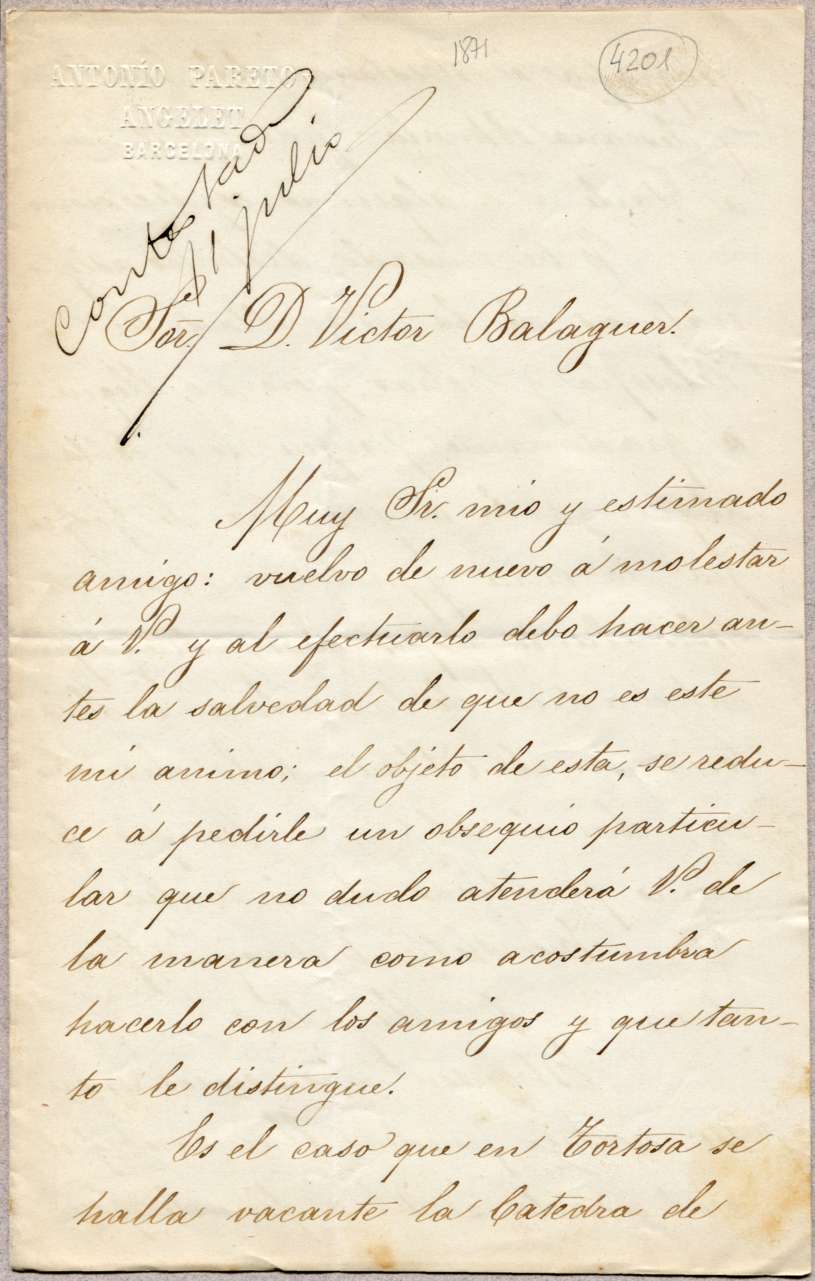 1871
4201
ANTONÍO PARETO
ANGELET
BARCELONA
Contestada
11 julio
Sor. D. Victor Balaguer.
Muy Sr. mio y estimado
amigo: vuelvo de nuevo á molestar
á V. y al efectuarlo debo hacer an-
tes la salvedad de que no es este
mi animo; el objeto de esta, se redu-
ce á pedirle un obsequio particu-
lar que no dudo atenderá V. de
la manera como acostumbra
hacerlo con los amigos y que tan-
to le distingue.
Es el caso que en Tortosa se
halla vacante la Catedra de